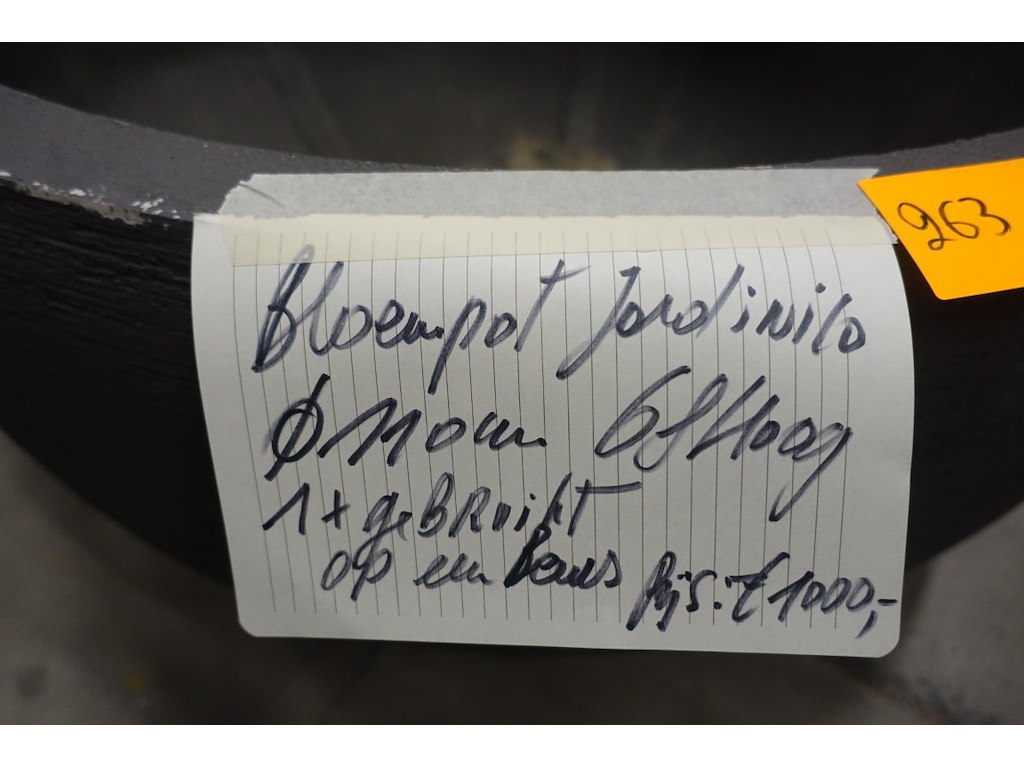 Bloempot Jardinico
Ø 110 cm 68 Hoog
1x geBRuikt
op een Beurs
Prijs: € 1000,-
263